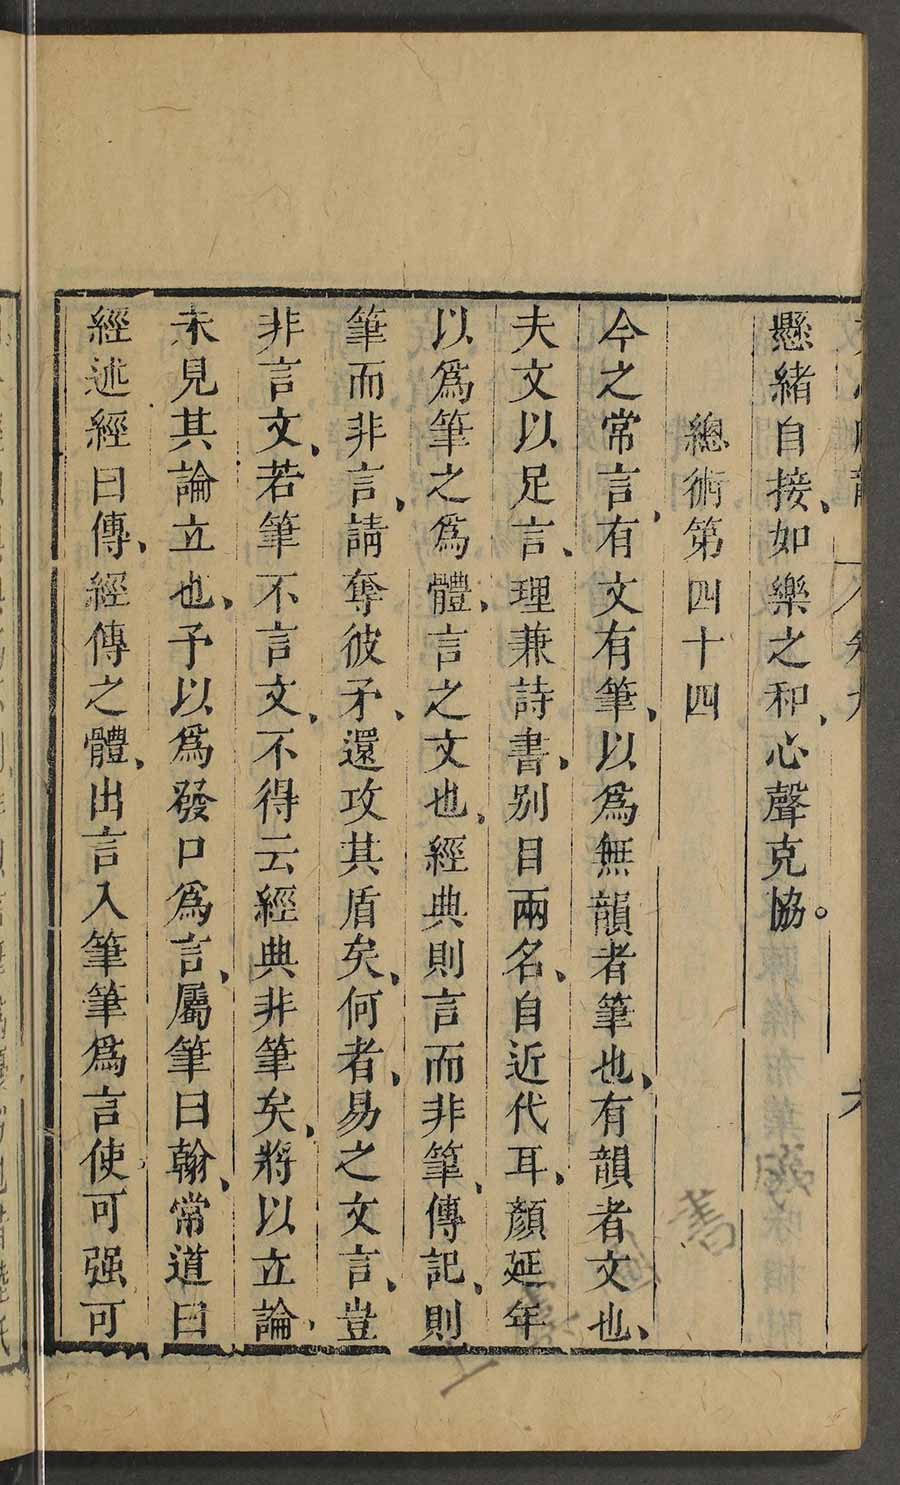 懸緒自接、如樂之和、心聲克協。
總術第四十四
今之常言、有文有筆、以爲無韻者筆也、有韻者文也、
夫文以足言、理兼詩書、别目兩名、自近代耳、顏延年
以爲筆之爲體、言之文也、經典則言而非筆、傳記、則
筆而非言、請奪彼矛、還攻其盾矣、何者、易之文言、豈
非言文、若筆不言文、不得云經典非筆矣、將以立論、
未見其論立也、予以爲發口爲言、屬筆曰翰、常道曰
經述經曰傳、經傳之體、出言入筆筆爲言使可强可